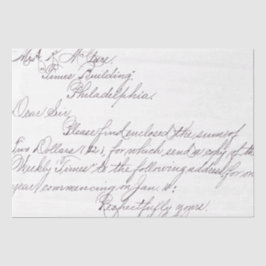 Times Building.
Philadelphia.
Dear Sir,
Please find enclosed the sum of
Two Dollars ($2), for which send a copy of the
Weekly "Times" to the following address for one
year commencing on Jan. 1:
Respectfully yours.